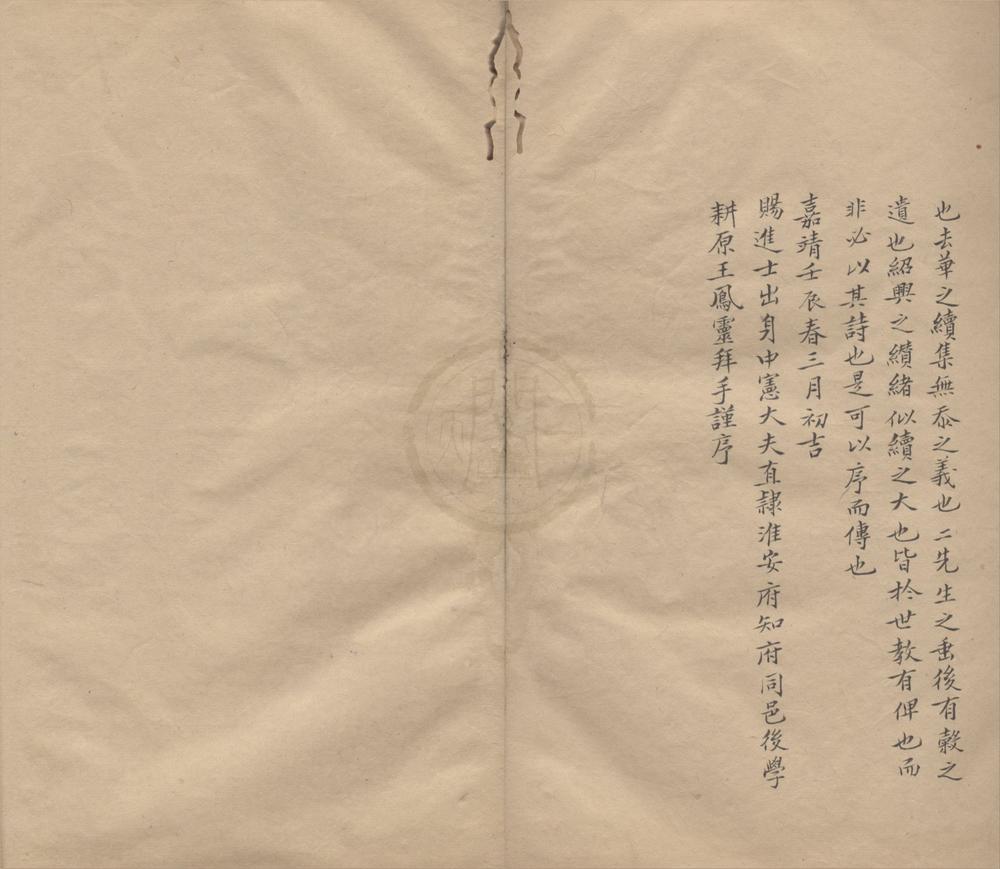 也去華之續集無忝之義也二先生之垂後有穀之
遺也紹興之纘緒似續之大也皆於世教有俾也而
非必以其詩也是可以序而傳也
嘉靖壬辰春三月初吉
賜進士出身中憲大夫直隸淮安府知府同邑後學
耕原王鳳靈拜手謹序